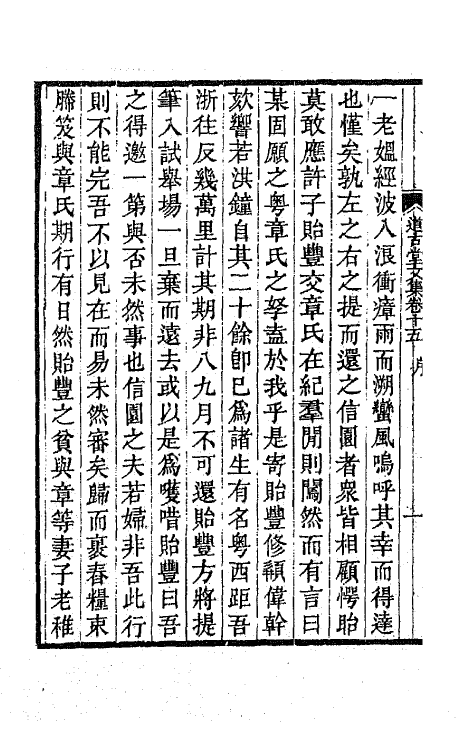 道古堂文集卷十五 序 一
一老媼經波入浪衝瘴雨而溯蠻風嗚呼其幸而得達
也僅矣孰左之右之提而還之信園者衆皆相顧愕眙
莫敢應許子貽豐交章氏在紀羣閒則闖然而有言曰
某固願之粤章氏之孥盍於我乎是寄貽豐修顙偉幹
欬響若洪鐘自其二十餘卽已爲諸生有名粤西距吾
浙往反幾萬里計其期非八九月不可還貽豐方將提
筆入試舉場一旦棄而遠去或以是爲嚄唶貽豐曰吾
之得邀一第與否未然事也信園之夫若婦非吾此行
則不能完吾不以見在而易未然審矣歸而裹春糧束
縢笈與章氏期行有日然貽豐之貧與章等妻子老稚